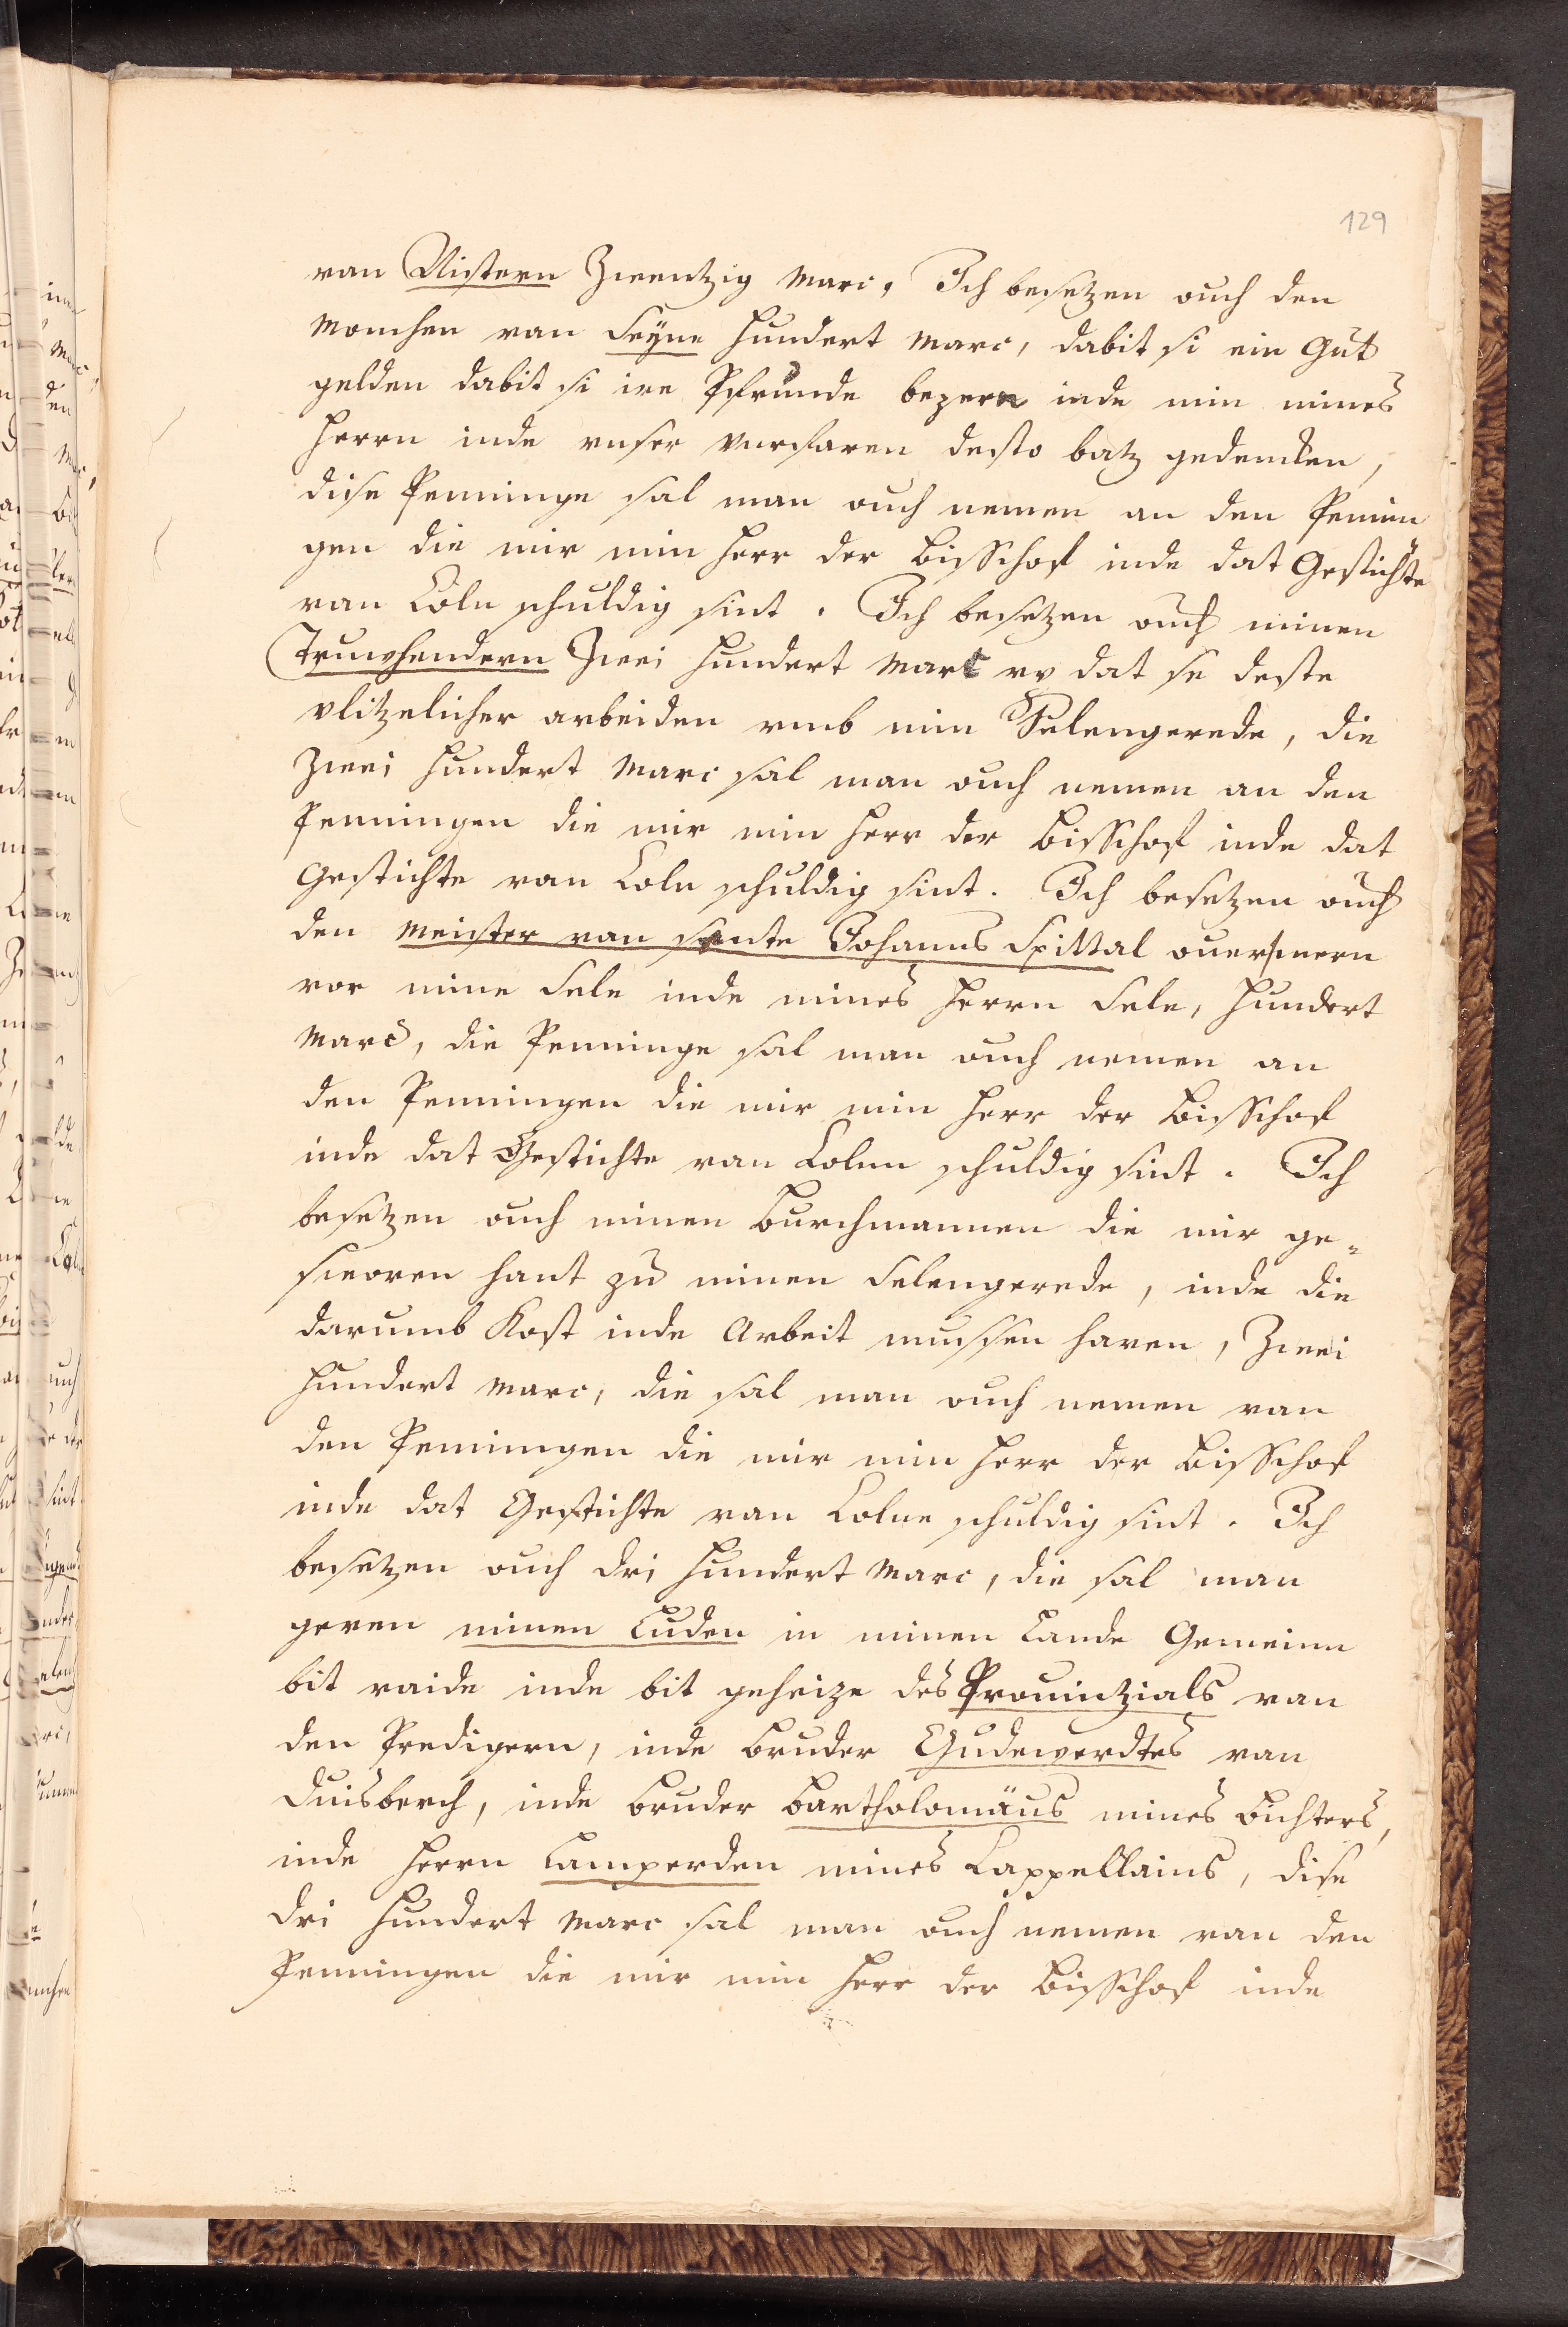 129
van Nistern Zwentzig Marc. Ich besetzen ouch den
Monchen van Seyne hundert Marc, dabit si ein Gut
gelden dabit si ire Pfrunde bezern inde min mines
Herrn inde unser Vorfaren desto batz gedencken,
dise Penninge sal man ouch nemen an den Pennin
gen die mir min Herr der Bisschof inde dat Gestichte
van Coln schuldig sint. Ich besetzen ouch minen
Truwhendern Zwei hundert Marc up dat se deste
vlitzelicher arbeiden umb min Selengerede, die
Zwei hundert Marc sal man ouch nemen an den
Penningen die mir min Herr der Bisschof inde dat
Gestichte van Coln schuldig sint. Ich besetzen ouch
den Meister van sente Johanns Spittal
vor mine Sele inde mines Herrn Sele, hundert
Marc, die Penninge sal man ouch nemen an
den Penningen die mir min Herr der Bisschof
inde dat Gestichte van Colne schuldig sint. Ich
besetzen ouch minen Burchmannen die mir ge-
sworen hant zu minen Selengerede, inde die
darumb Kost inde Arbeit mussen haven, Zwei
hundert Marc, die sal man ouch nemen van
den Penningen die mir min Herr der Bisschof
inde dat Gestichte van Colne schuldig sint. Ich
besetzen ouch dri hundert Marc, die sal man
geven minen Luden in minen Lande Gemeinn
bit raide inde bit geheize des Prouinzials van
den Predigern, inde Bruder Gudewerdtes van
Duisberch, inde Bruder Bartholomäus mines Bichters,
inde Herrn Lamperden mines Cappellains, dise
dri hundert Marc sal man ouch nemen van den
Penningen die mir min Herr der Bisschof inde